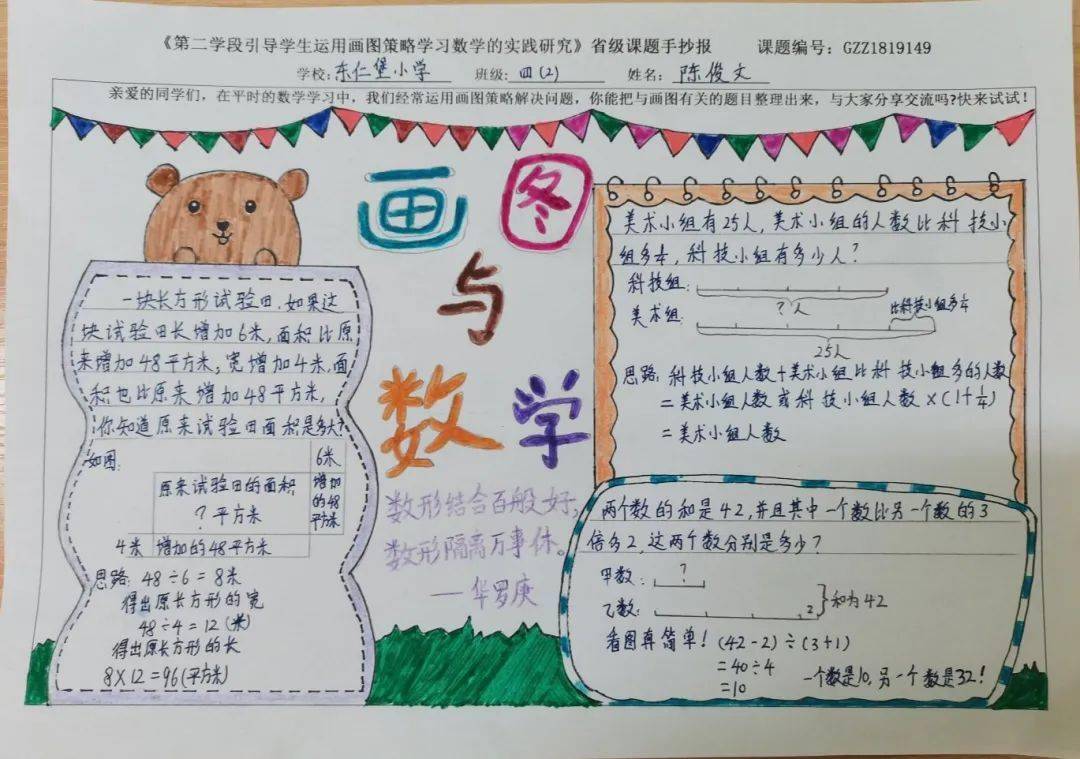 《第二学段引导学生运用画图策略学习数学的实践研究》省级课题手抄报 课题编号：GZZ1819149
学校：东仁堡小学 班级：四(2) 姓名：陈俊文
亲爱的同学们，在平时的数学学习中，我们经常运用画图策略解决问题，你能把与画图有关的题目整理出来，与大家分享交流吗？快来试试！
画图
与
数学
数形结合百般好，
数形隔离万事休。
——华罗庚
一块长方形试验田.如果这
块试验田长增加6米,面积比原
来增加48平方米,宽增加4米,面
积也比原来增加48平方米,
你知道原来试验田面积是多大?
如图:
6米
原来试验田的面积
?平方米
增加
的48
平方米
4米 增加的48平方米
思路: 48÷6=8米
得出原长方形的宽
48÷4=12(米)
得出原长方形的长
8×12=96(平方米)
美术小组有25人,美术小组的人数比科技小
组多1/4,科技小组有多少人?
科技组:
?人
美术组:
比科技小组多1/4
25人
思路:科技小组人数+美术小组比科技小组多的人数
=美术小组人数或科技小组人数×(1+1/4)
=美术小组人数
两个数的和是42,并且其中一个数比另一个数的3
倍多2,这两个数分别是多少?
甲数: ?
乙数: 2
和为42
看图真简单! (42-2)÷(3+1)
=40÷4
=10
一个数是10,另一个数是32!